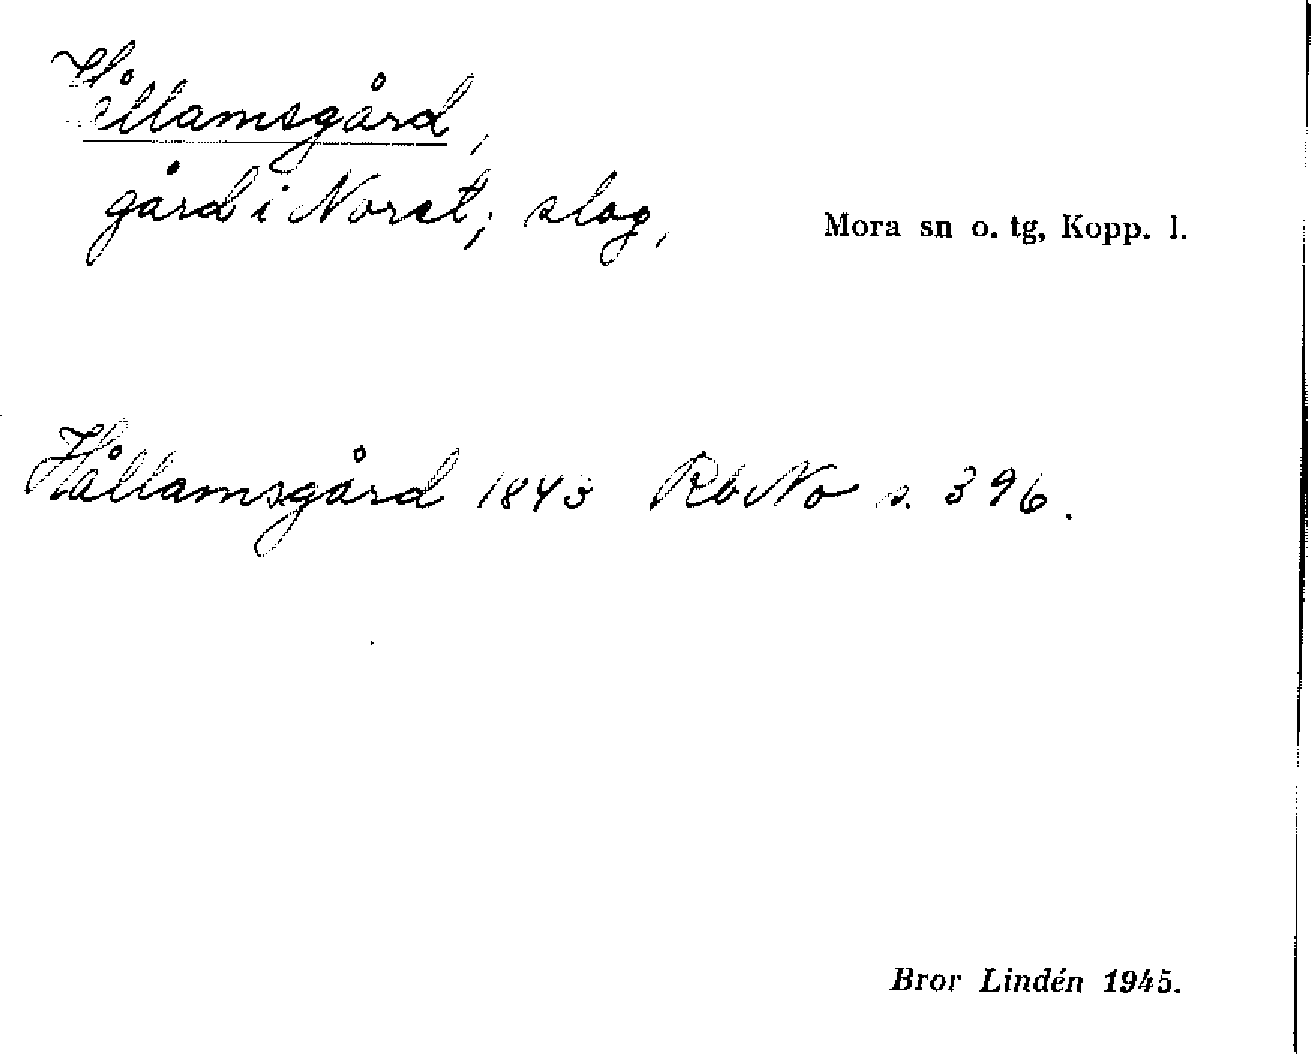 Hållamsgård,
gård i Noret; slog,
Mora sn o. tg, Kopp. l.
Hållamsgård 1843 RbNo s. 396.
Bror Lindén 1945.